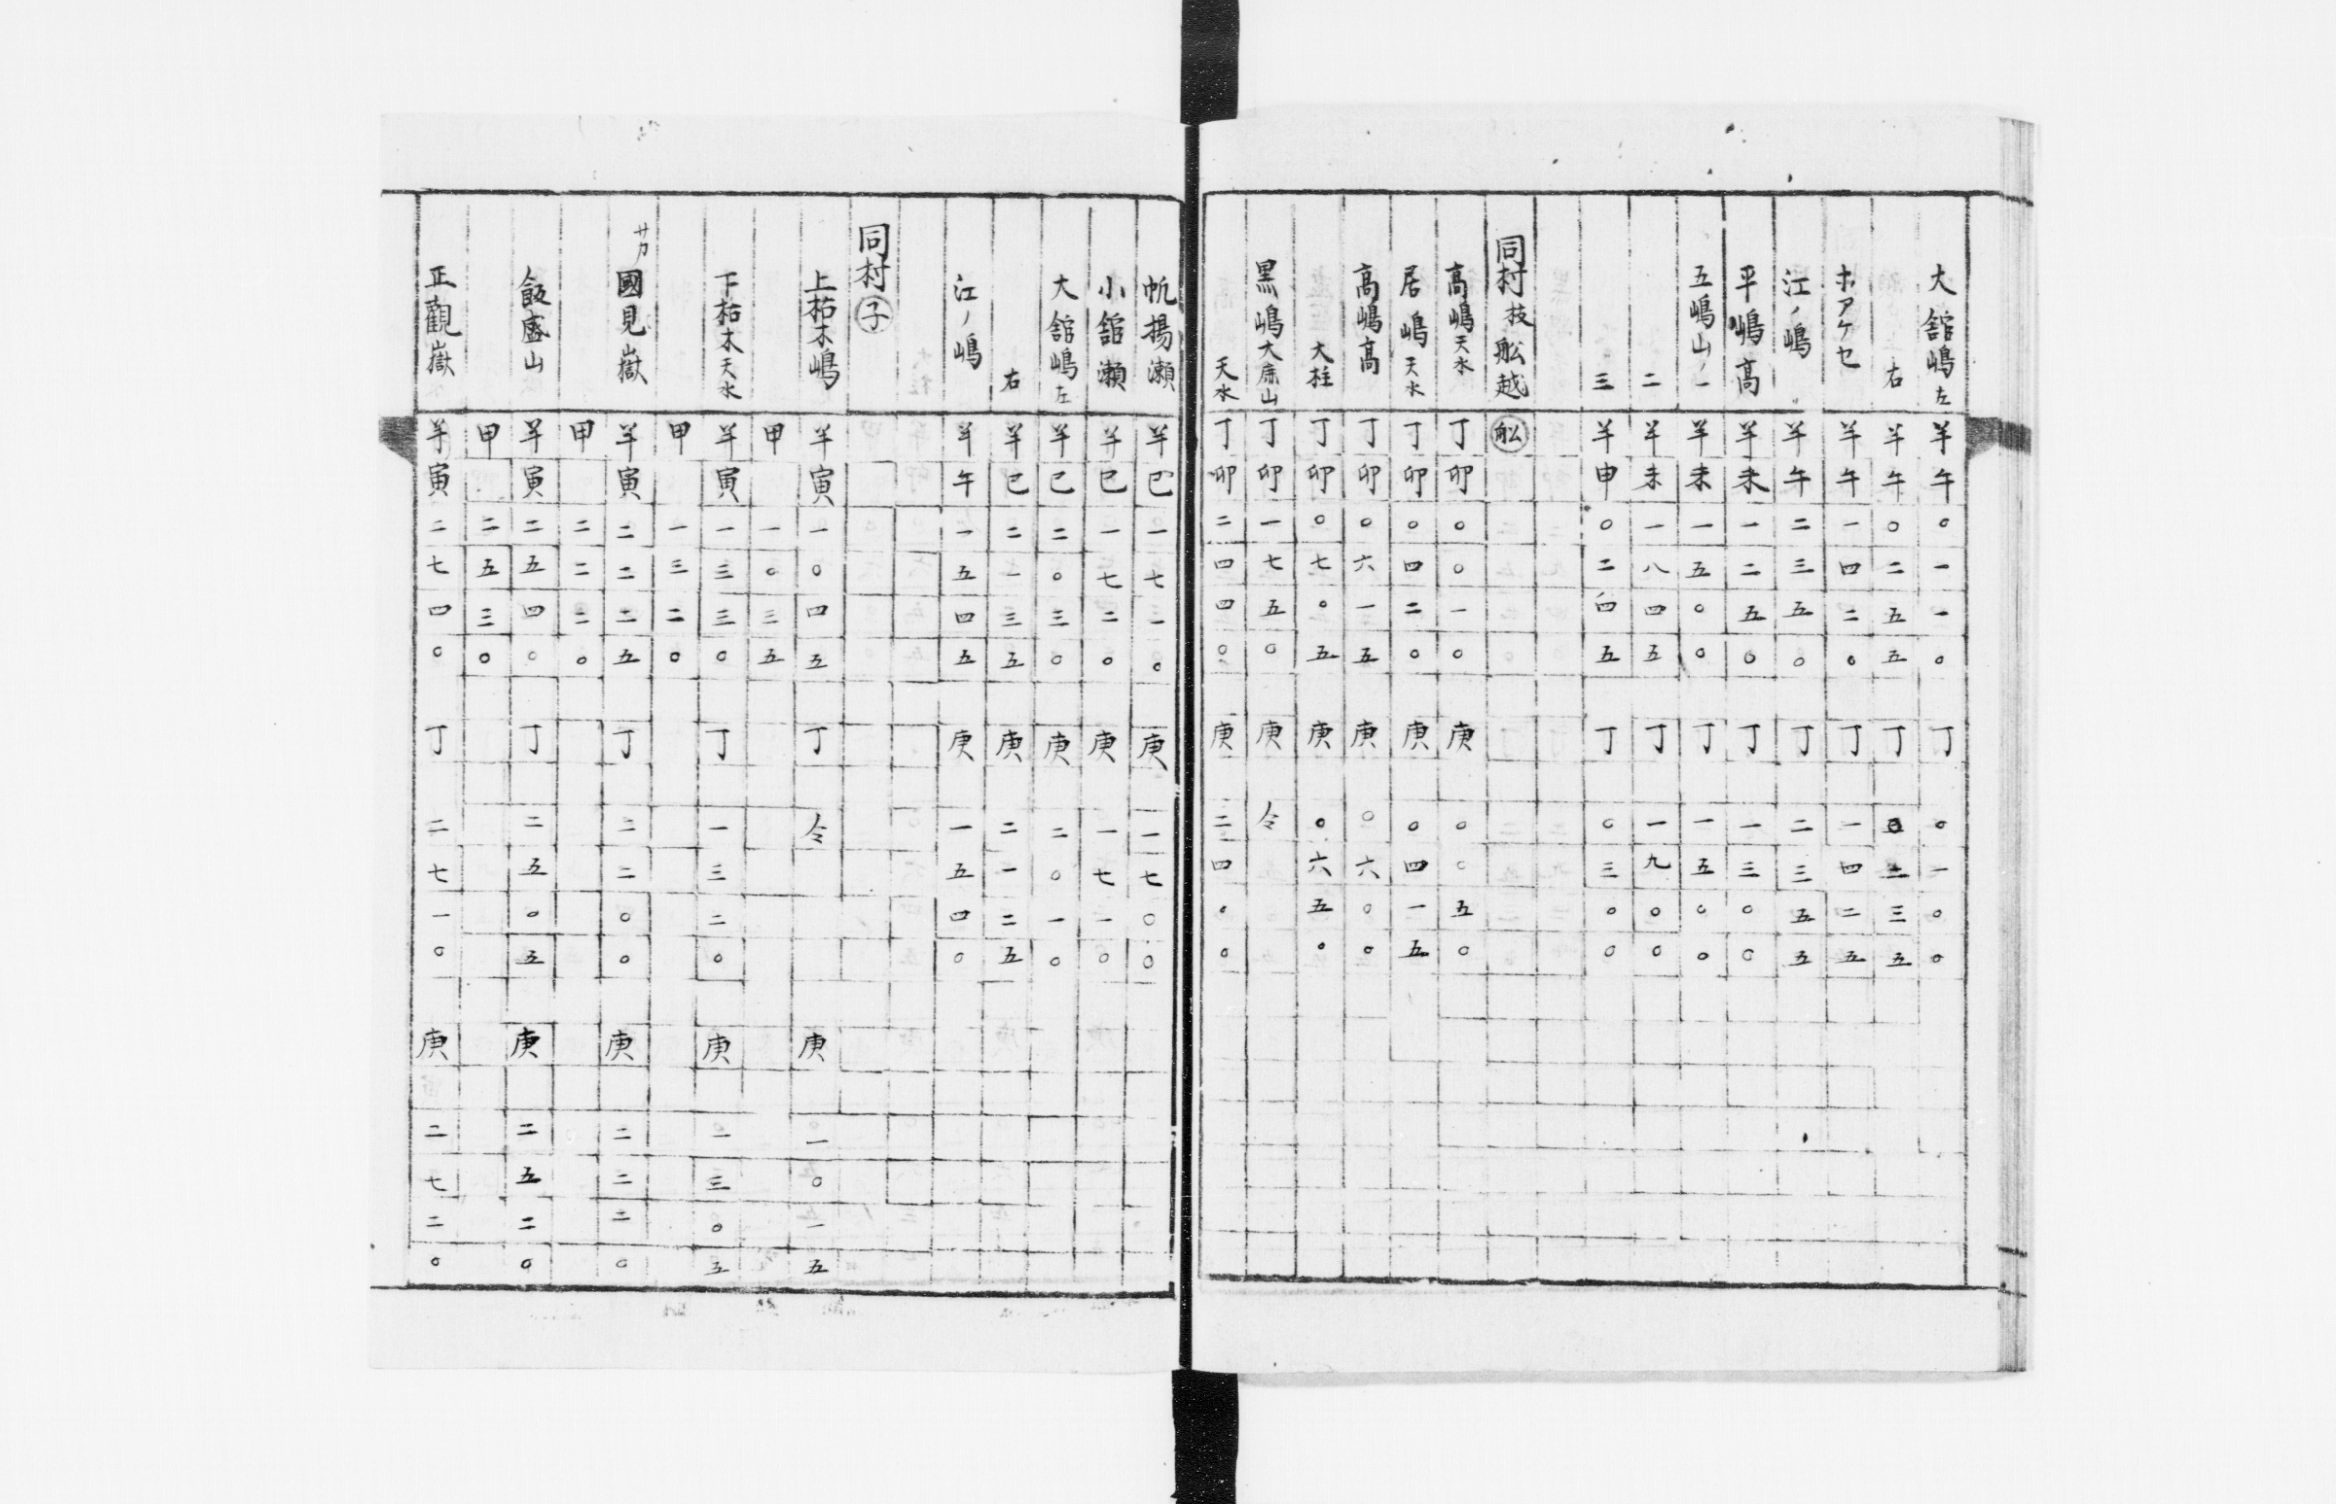 大舘嶋左 羊午〇一一〇 丁〇一〇〇
右 羊午〇二五五 丁 三五
ホアケセ 羊午一四二〇 丁一四二五
江ノ嶋 羊午二三五〇 丁二三五五
平嶋高 羊未一二五〇 丁一三〇〇
五嶋山ノ一 羊未一五〇〇 丁一五〇〇
二 羊未一八四五 丁一九〇〇
三 羊申〇二四五 丁〇三〇〇
同村枝舩越 舩
高嶋天水 丁卯〇〇一〇 庚〇〇五〇
居嶋天水 丁卯〇四二〇 庚〇四一五
高嶋高 丁卯〇六一五 庚〇六〇〇
大柱 丁卯〇七〇五 庚〇六五〇
黒嶋大麻山 丁卯一七五〇 庚令
天水 丁卯二四四〇 庚二四〇〇
帆揚瀬 羊巳一七二〇 庚一七〇〇
小舘瀬 羊巳一七二〇 庚一七一〇
大舘嶋左 羊巳二〇三〇 庚二〇一〇
右 羊巳二一三五 庚二一二五
江ノ嶋 羊午一五四五 庚一五四〇
同村 子
上祏木嶋 羊寅一〇四五 丁令 庚一〇一五
甲 一〇三五
下祏木天水 羊寅一三三〇 丁一三二〇 庚一三〇五
甲 一三二〇
サカ國見嶽 羊寅二二二五 丁二二〇〇 庚二二二〇
甲 二二二〇
飯盛山 羊寅二五四〇 丁二五〇五 庚二五二〇
甲 二五三〇
正觀嶽 羊寅二七四〇 丁二七一〇 庚二七二〇